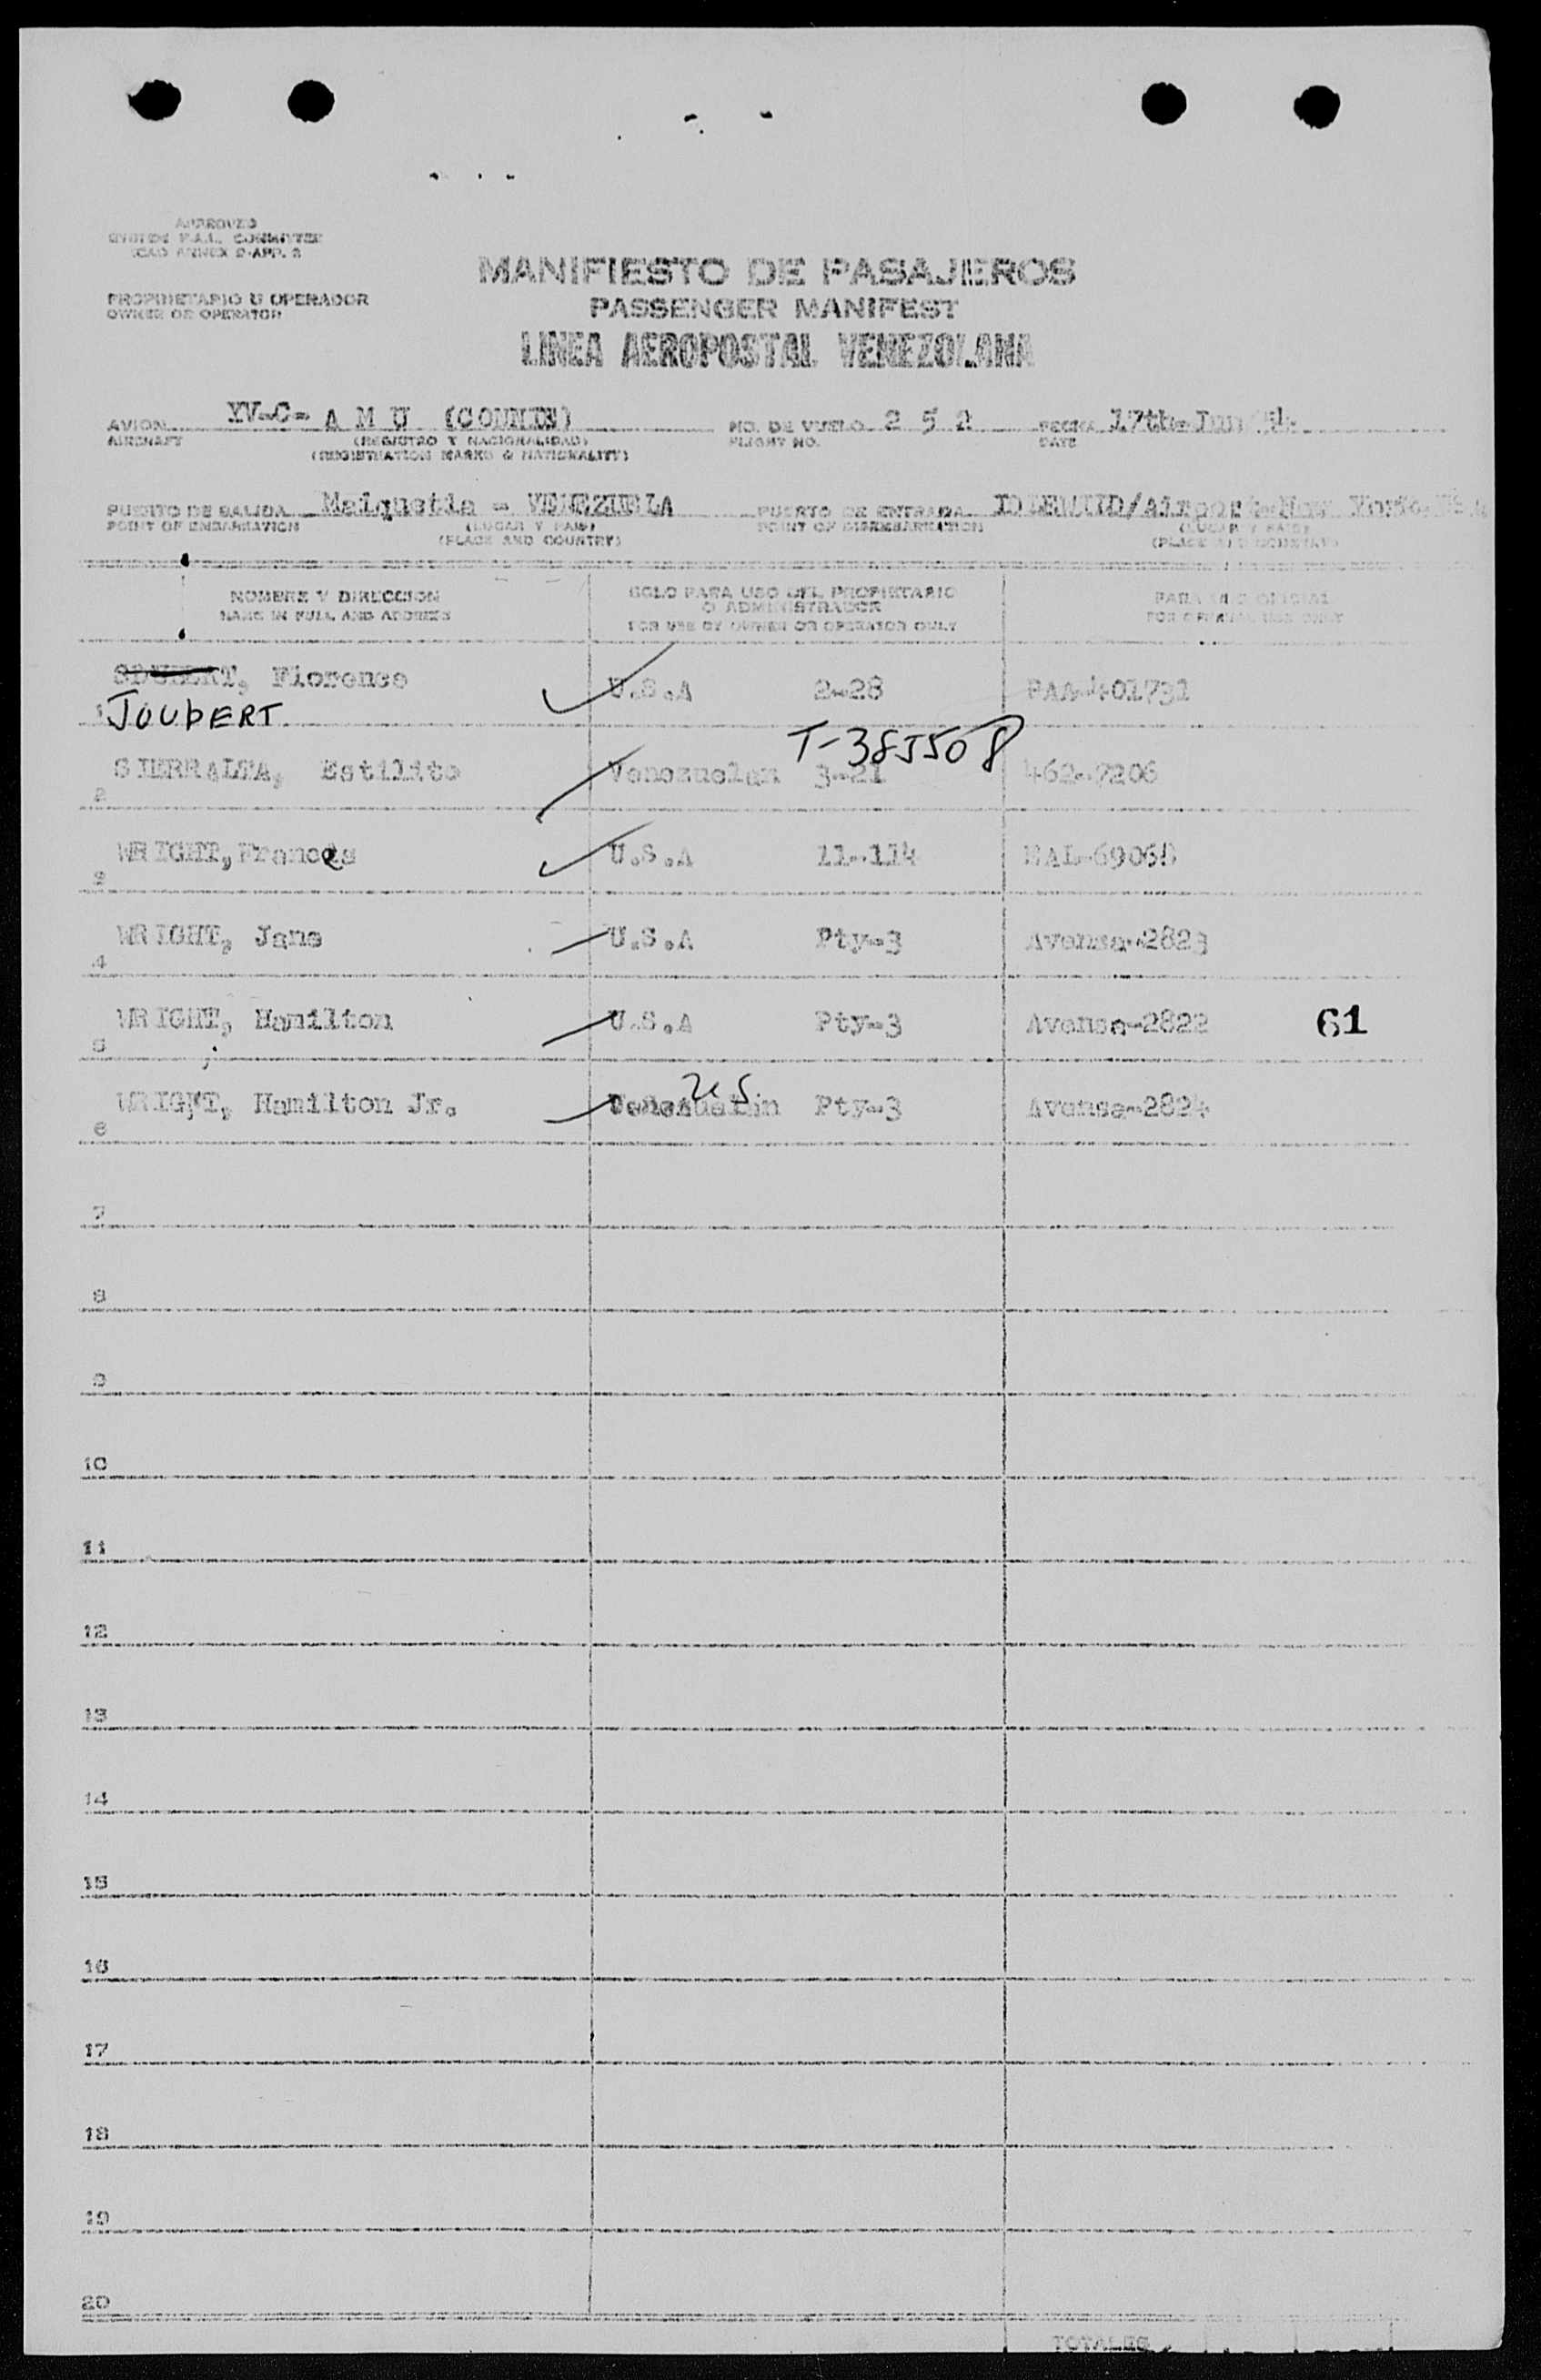 APPROVED
SYSTEM F.A.L. COMMITTEE
ICAO ANNEX 9-APP. 3
MANIFIESTO DE PASAJEROS
PROPRIETARIO U OPERADOR
PASSENGER MANIFEST
OWNER OR OPERATOR
LINEA AEROPOSTAL VENEZOLANA
AVION YV-C- A M U NO. DE VUELO 2 5 2 FECHA 17th-Jun 54
AIRCRAFT (REGISTRO Y NACIONALIDAD) FLIGHT NO. DATE
(REGISTRATION MARKS & NATIONALITY)
PUERTO DE SALIDA Maiquetia - VENEZUELA PUERTO DE ENTRADA IDLEWIID/Airport-New York
POINT OF EMBARKATION (LUGAR Y PAIS) POINT OF DISEMBARKATION (LUGAR Y PAIS)
(PLACE AND COUNTRY) (PLACE AND COUNTRY)
NOMBRE Y DIRECCION SOLO PARA USO DEL PROPIETARIO PARA USO OFICIAL
O ADMINISTRADOR
NAME IN FULL AND ADDRESS FOR USE BY OWNER OR OPERATOR ONLY FOR OFFICIAL USE ONLY
Florence U.S.A 2-28 PAA-401731
1 JOUBERT
T-385508
SIERRALTA, Estilito Venezuelan 3-21 462-7206
2
WRIGHT, Frances U.S.A 11-114
3
WRIGHT, Jane U.S.A Pty-3 Avensa-2823
4
WRIGHT, Hamilton U.S.A Pty-3 Avensa-2822 61
5
WRIGHT, Hamilton Jr. Venezuelan Pty-3 Avensa-2824
6
7
8
9
10
11
12
13
14
15
16
17
18
19
20
TOTALES